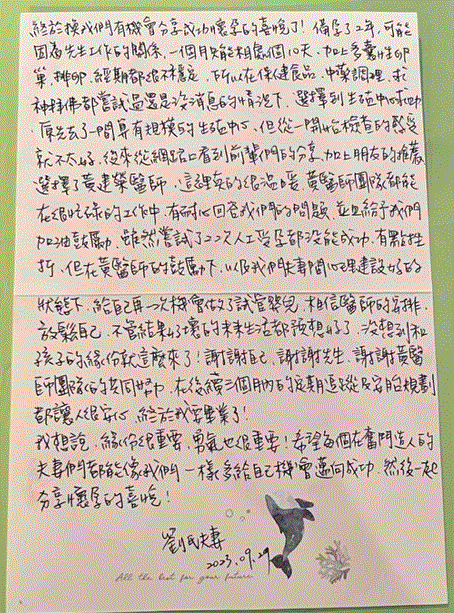 終於換我們有機會分享成功懷孕的喜悅了！備孕了2年，可能
因為先生工作的關係，一個月只能相處個10天，加上多囊性卵
巢，排卵、經期都很不穩定，所以在保健食品、中藥調理、求
神拜佛都嘗試過還是沒消息的情況下，選擇到生殖中心求助
原先去了一間算有規模的生殖中心，但從一開始檢查的感受
就不太好，後來從網路上看到前輩們的分享，加上朋友的推薦
選擇了黃建榮醫師，這裡真的很溫暖，黃醫師團隊都能
在很忙碌的工作中，有耐心回答我們的問題，並且給予我們
加油鼓勵，雖然嘗試了2次人工受孕都沒能成功，有點挫
折，但在黃醫師的鼓勵下，以及我們夫妻間心理建設好的
狀態下，給自己再一次機會做了試管嬰兒，相信醫師的安排，
放鬆自己，不管結果好壞的未來生活都預想好了，沒想到和
孩子的緣份就這麼來了！謝謝自己，謝謝先生，謝謝黃醫
師團隊的共同努力，在後續三個月內的定期追蹤及安胎規劃
都讓人很安心，終於我要畢業了！
我想說，緣份很重要，勇氣也很重要！希望每個在奮鬥造人的
夫妻們都能像我們一樣多給自己機會邁向成功，然後一起
分享懷孕的喜悅！
劉氏夫妻
2023.09.29
All the best for your future